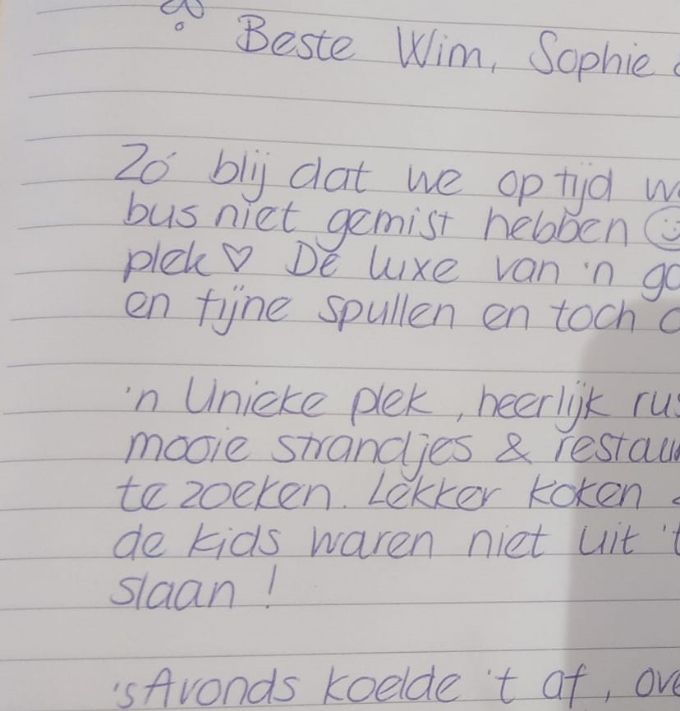 Beste Wim, Sophie
Zó blij dat we op tijd
bus niet gemist hebben
plek♡ De luxe van 'n
en fijne spullen en toch
'n Unieke plek, heerlijk
mooie strandjes &
te zoeken. Lekker koken
de kids waren niet uit 't
slaan!
's Avonds koelde 't af,